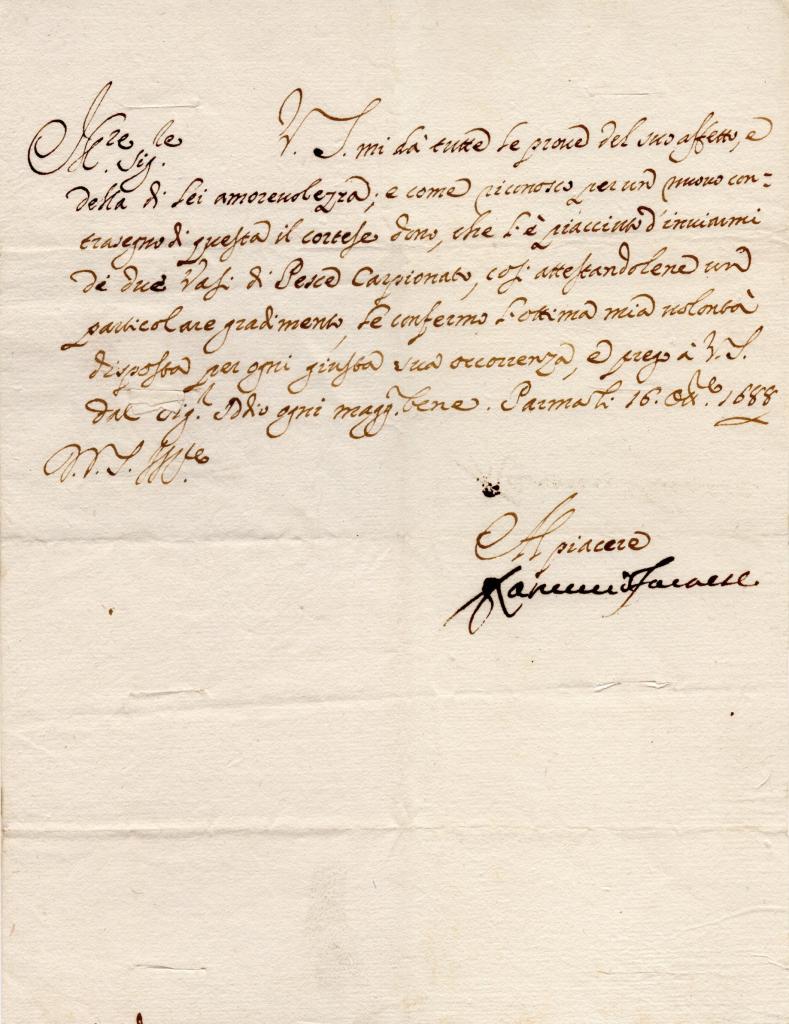 Ill.re Sig.re V. S. mi dà tutte le prove del suo affetto, e
della di lei amorevolezza; e come riconosco per un nuovo con=
trasegno di questa il cortese dono, che l'è piacciuto d'inviarmi
de due Vasi di Pesce Carpionato, così attestandolene un
particolare gradimento, le confermo l'ottima mia volontà
disposta per ogni giusta sua occorrenza, e prego à V. S.
dal Sig.r Iddio ogni magg.r bene. Parma li 16. Ott.re 1688
D. V. S. Ill.re
Al piacere
Ranuccio Farnese